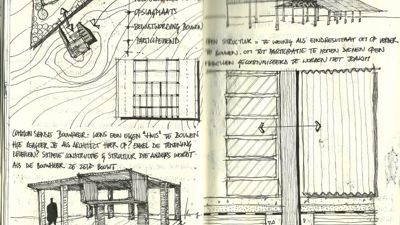 OPSLAGPLAATS
BEWUSTWORDING BOUWEN
PARTICIPEREND
COMMON SENSE BOUWHEER: WENS EEN EIGEN "HUIS" TE BOUWEN
HOE REAGEER JE ALS ARCHITECT HIER OP? ENKEL DE TEKENING
LEVEREN? SUMIERE CONSTRUCTIE & STRUCTUUR DIE ANDERS WORDT
ALS DE BOUWHEER ZE ZELF BOUWT
OPEN STRUCTUUR = TE WEINIG ALS EINDRESULTAAT OM OP VERDER
TE BOUWEN. OM TOT PARTICIPATIE TE KOMEN DIENEN GEEN
TE WORDEN MET